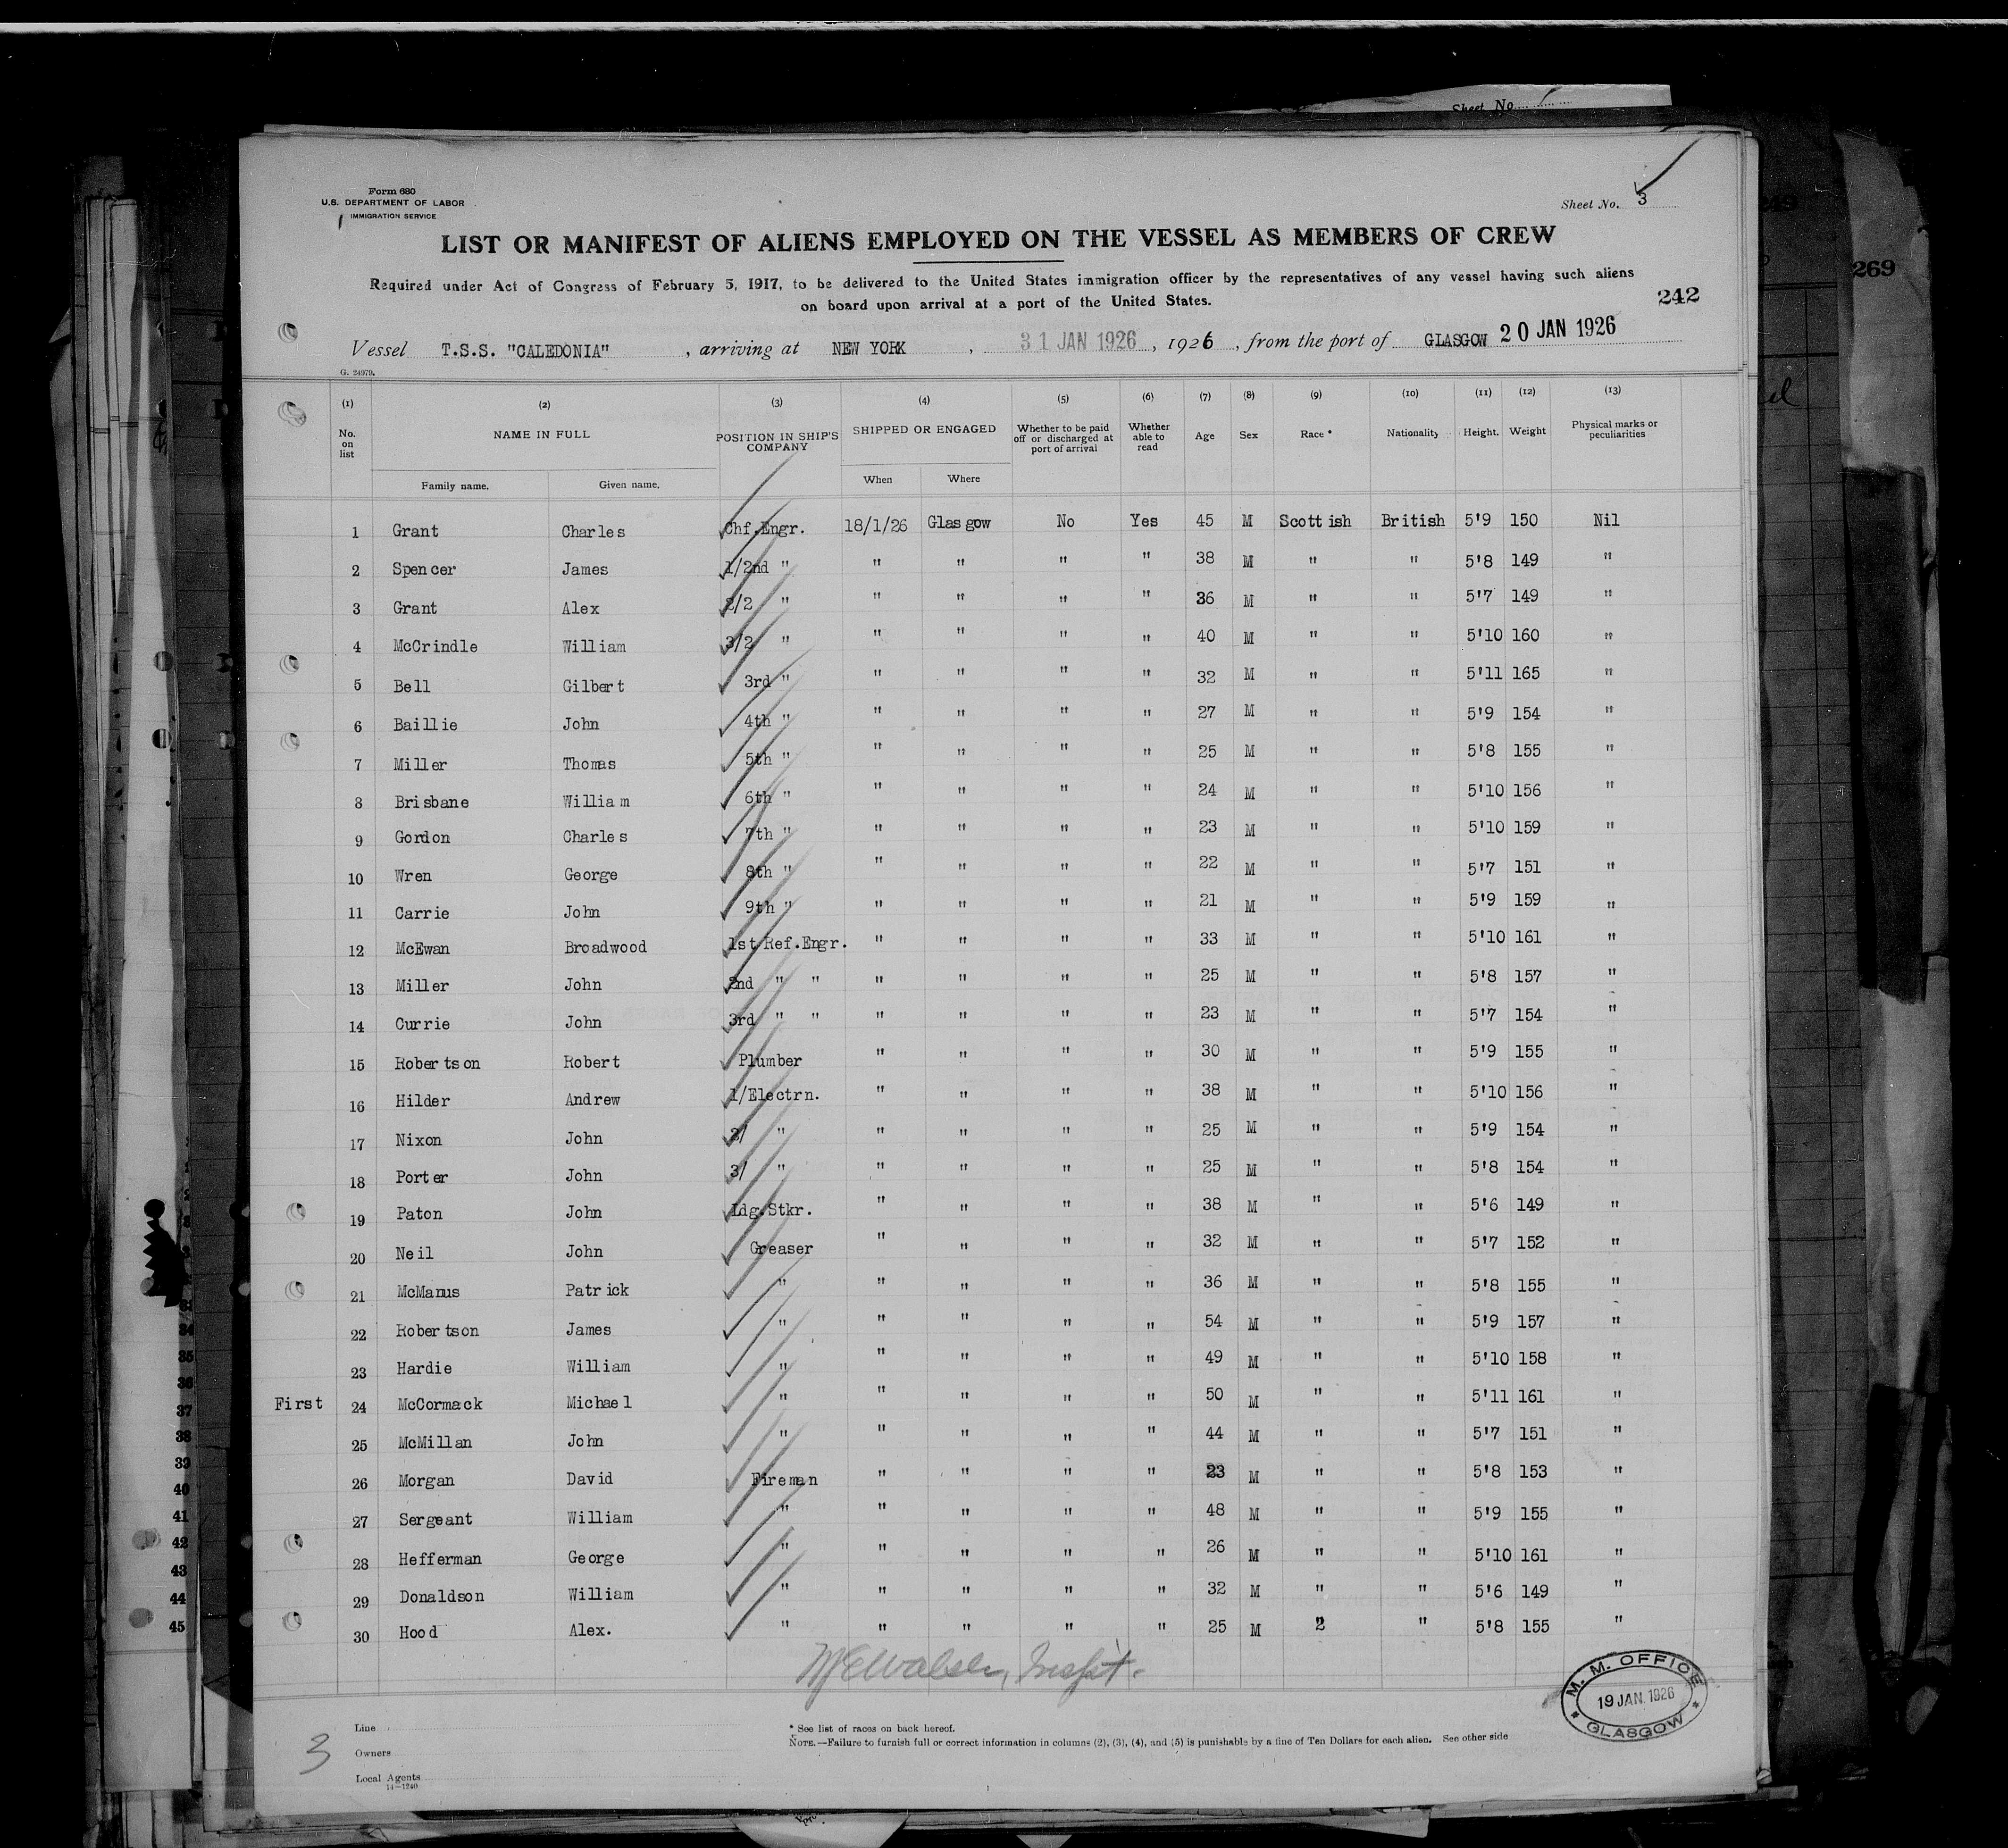 Sheet No.
Form 680
U.S. DEPARTMENT OF LABOR
IMMIGRATION SERVICE
Sheet No. 3
LIST OR MANIFEST OF ALIENS EMPLOYED ON THE VESSEL AS MEMBERS OF CREW
Required under Act of Congress of February 5, 1917, to be delivered to the United States immigration officer by the representatives of any vessel having such aliens
on board upon arrival at a port of the United States.
242
269
Vessel T.S.S. "CALEDONIA" , arriving at NEW YORK , 31 JAN 1926 , 1926 , from the port of GLASGOW 20 JAN 1926
G. 24979.
(1) (2) (3) (4) (5) (6) (7) (8) (9) (10) (11) (12) (13)
No. on list NAME IN FULL POSITION IN SHIP'S COMPANY SHIPPED OR ENGAGED Whether to be paid off or discharged at port of arrival Whether able to read Age Sex Race * Nationality Height. Weight Physical marks or peculiarities
Family name. Given name. When Where
1 Grant Charles Chf.Engr. 18/1/26 Glasgow No Yes 45 M Scottish British 5'9 150 Nil
2 Spencer James 1/2nd " " " " " 38 M " " 5'8 149 "
3 Grant Alex 2/2 " " " " " 36 M " " 5'7 149 "
4 McCrindle William 3/2 " " " " " 40 M " " 5'10 160 "
5 Bell Gilbert 3rd " " " " " 32 M " " 5'11 165 "
6 Baillie John 4th " " " " " 27 M " " 5'9 154 "
7 Miller Thomas 5th " " " " " 25 M " " 5'8 155 "
8 Brisbane William 6th " " " " " 24 M " " 5'10 156 "
9 Gordon Charles 7th " " " " " 23 M " " 5'10 159 "
10 Wren George 8th " " " " " 22 M " " 5'7 151 "
11 Carrie John 9th " " " " " 21 M " " 5'9 159 "
12 McEwan Broadwood 1st Ref.Engr. " " " " 33 M " " 5'10 161 "
13 Miller John 2nd " " " " " " 25 M " " 5'8 157 "
14 Currie John 3rd " " " " " " 23 M " " 5'7 154 "
15 Robertson Robert Plumber " " " " 30 M " " 5'9 155 "
16 Hilder Andrew 1/Electrn. " " " " 38 M " " 5'10 156 "
17 Nixon John 2/ " " " " " 25 M " " 5'9 154 "
18 Porter John 3/ " " " " " 25 M " " 5'8 154 "
19 Paton John Ldg.Stkr. " " " " 38 M " " 5'6 149 "
20 Neil John Greaser " " " " 32 M " " 5'7 152 "
21 McManus Patrick " " " " " 36 M " " 5'8 155 "
22 Robertson James " " " " " 54 M " " 5'9 157 "
23 Hardie William " " " " " 49 M " " 5'10 158 "
First 24 McCormack Michael " " " " " 50 M " " 5'11 161 "
25 McMillan John " " " " " 44 M " " 5'7 151 "
26 Morgan David Fireman " " " " 23 M " " 5'8 153 "
27 Sergeant William " " " " " 48 M " " 5'9 155 "
28 Hefferman George " " " " " 26 M " " 5'10 161 "
29 Donaldson William " " " " " 32 M " " 5'6 149 "
30 Hood Alex. " " " " " 25 M 2 " 5'8 155 "
M. M. OFFICE
19 JAN. 1926
GLASGOW
3
Line
Owners
Local Agents
14—1240
* See list of races on back hereof.
NOTE.—Failure to furnish full or correct information in columns (2), (3), (4), and (5) is punishable by a fine of Ten Dollars for each alien. See other side
34
35
36
37
38
39
40
41
42
43
44
45